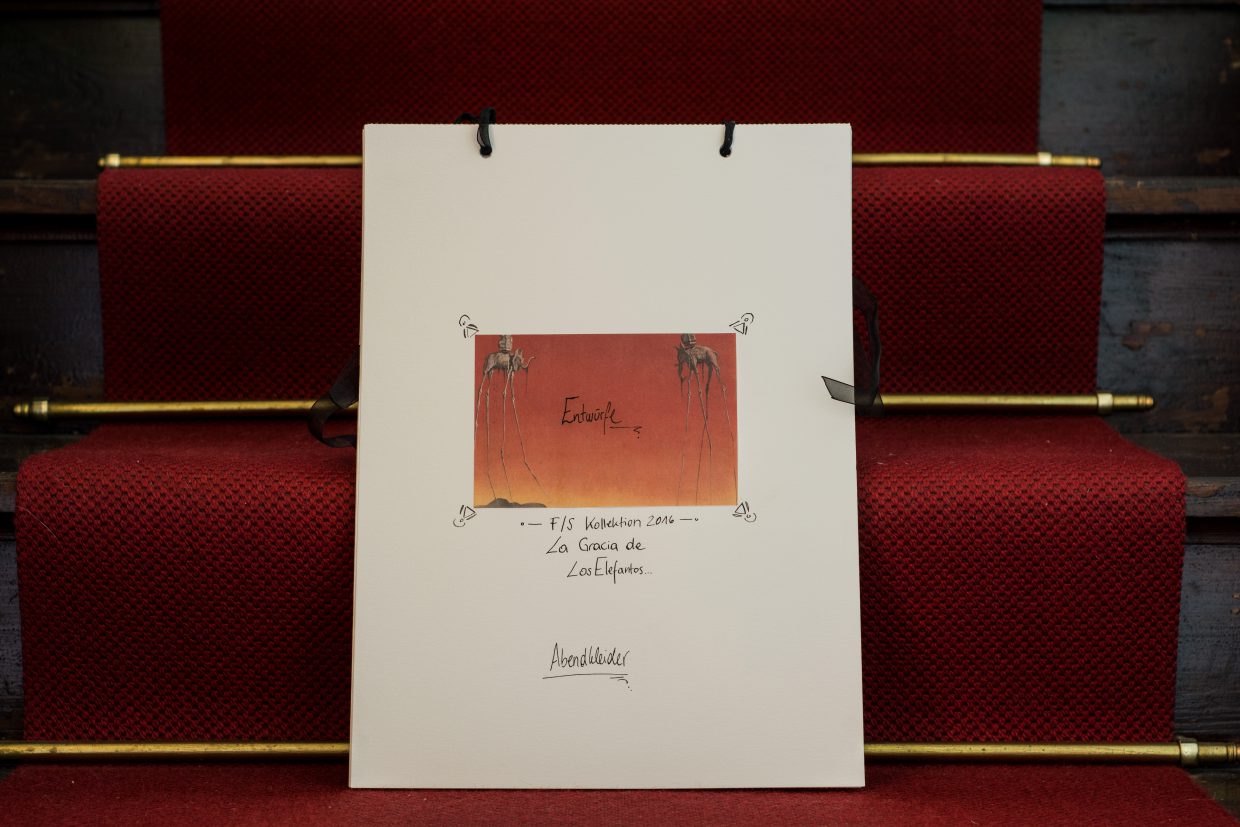 Entwürfe
F/S Kollektion 2016
La Gracia de
Los Elefantos...
Abendkleider